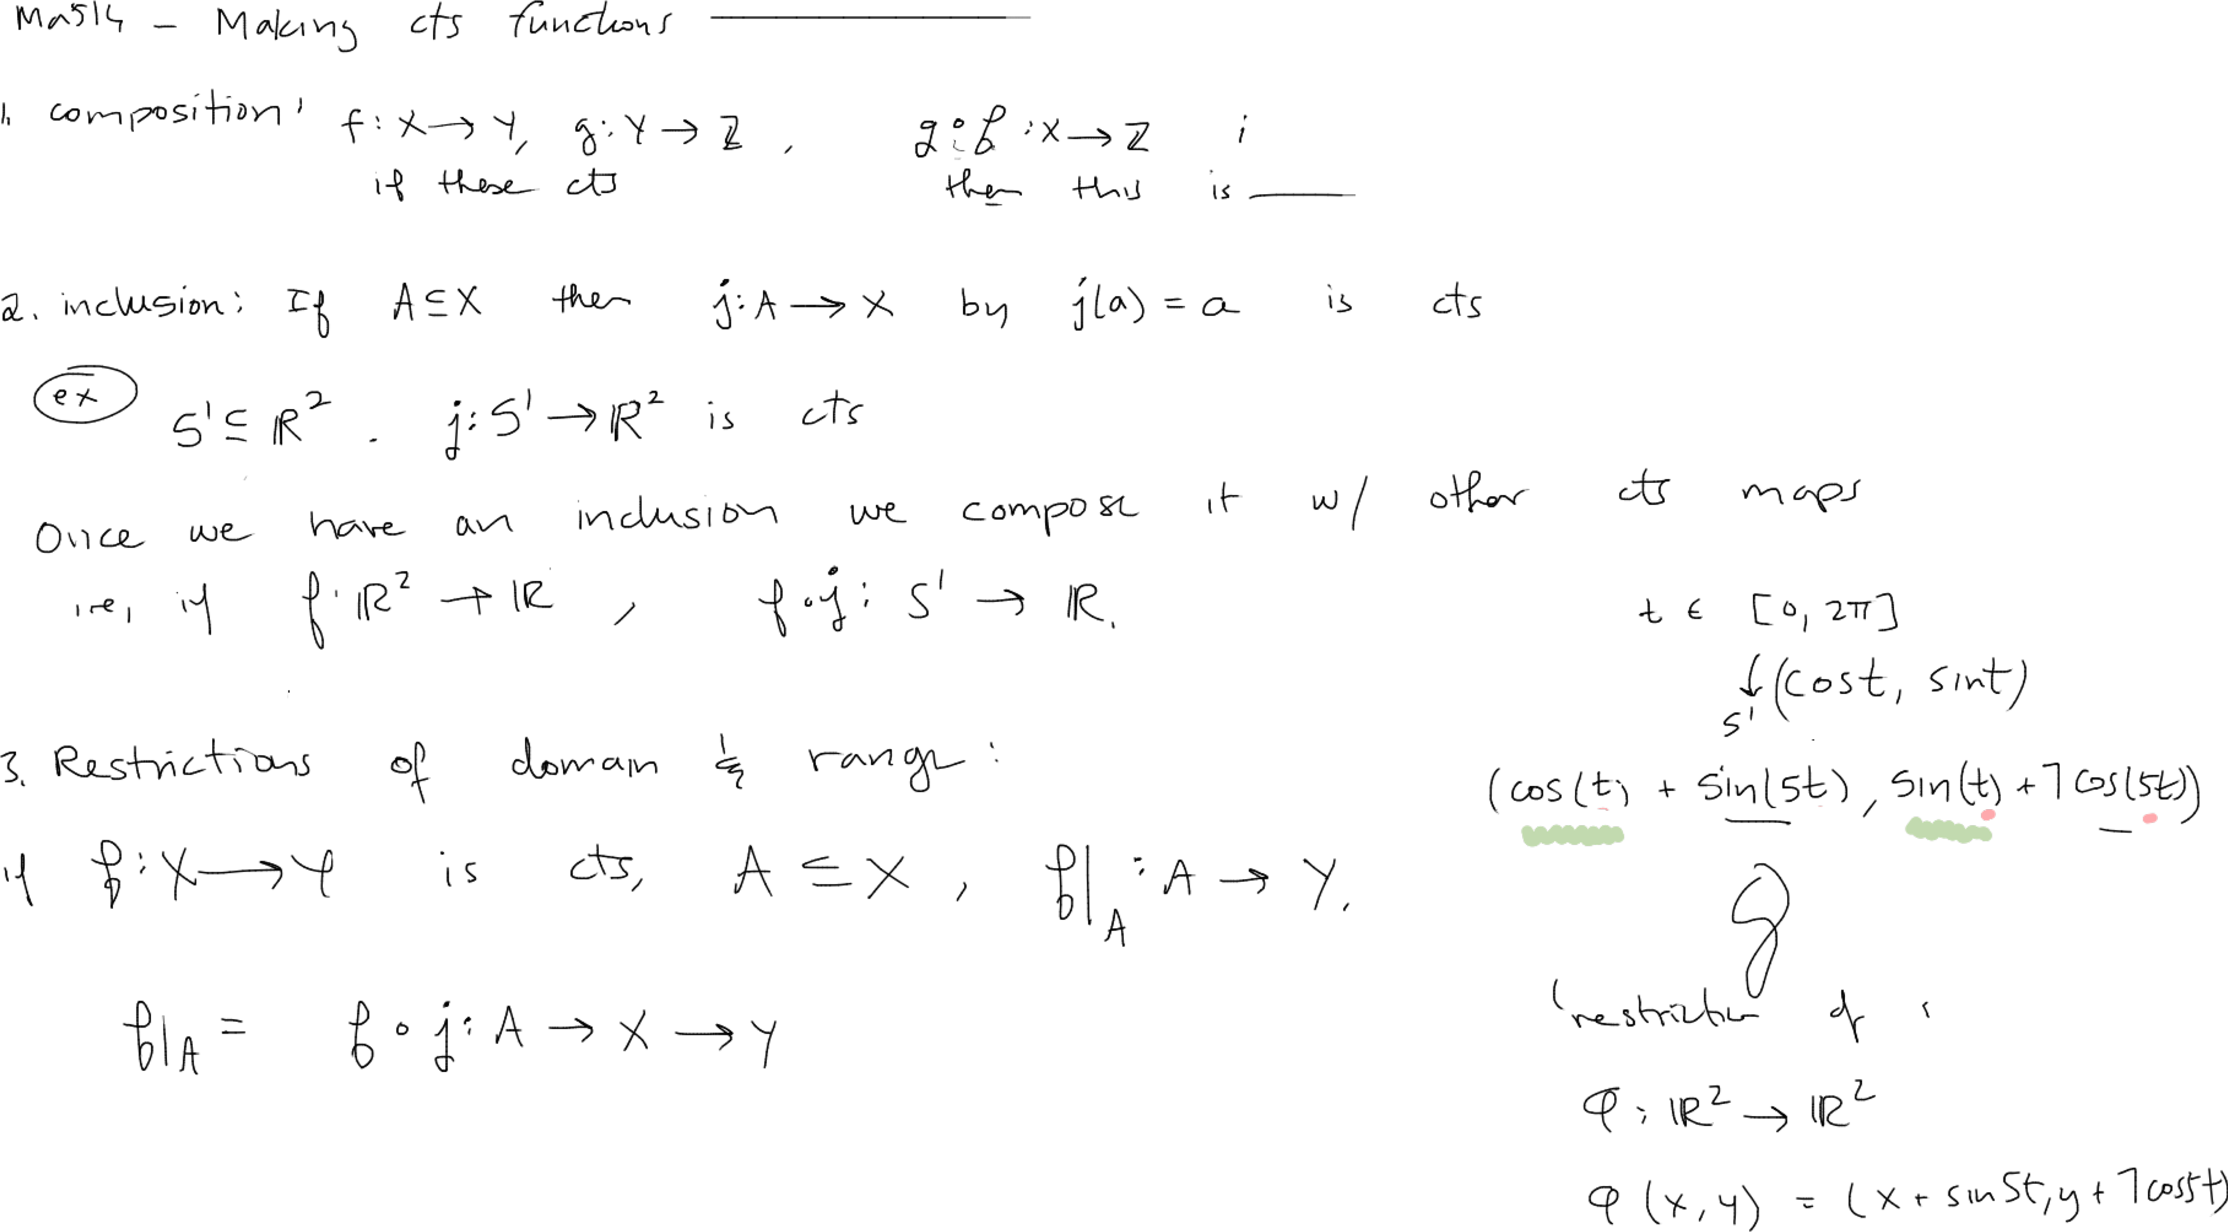 Ma514 - Making cts functions
1. composition: f: X → Y, g: Y → Z, g∘f : X → Z i
if these cts then this is ____
2. inclusion: If A ⊆ X then j: A → X by j(a) = a is cts
ex S¹ ⊆ ℝ². j: S¹ → ℝ² is cts
Once we have an inclusion we compose it w/ other cts maps
i.e., if f: ℝ² → ℝ, f∘j: S¹ → ℝ.
t ∈ [0, 2π]
↓ (cost, sint)
S¹
3. Restrictions of domain & range:
(cos(t) + sin(5t), sin(t) + 7cos(5t))
if f: X → Y is cts, A ⊆ X, f|_A : A → Y.
restriction of
f|_A = f∘j: A → X → Y
φ: ℝ² → ℝ²
φ(x, y) = (x + sin5t, y + 7cos5t)